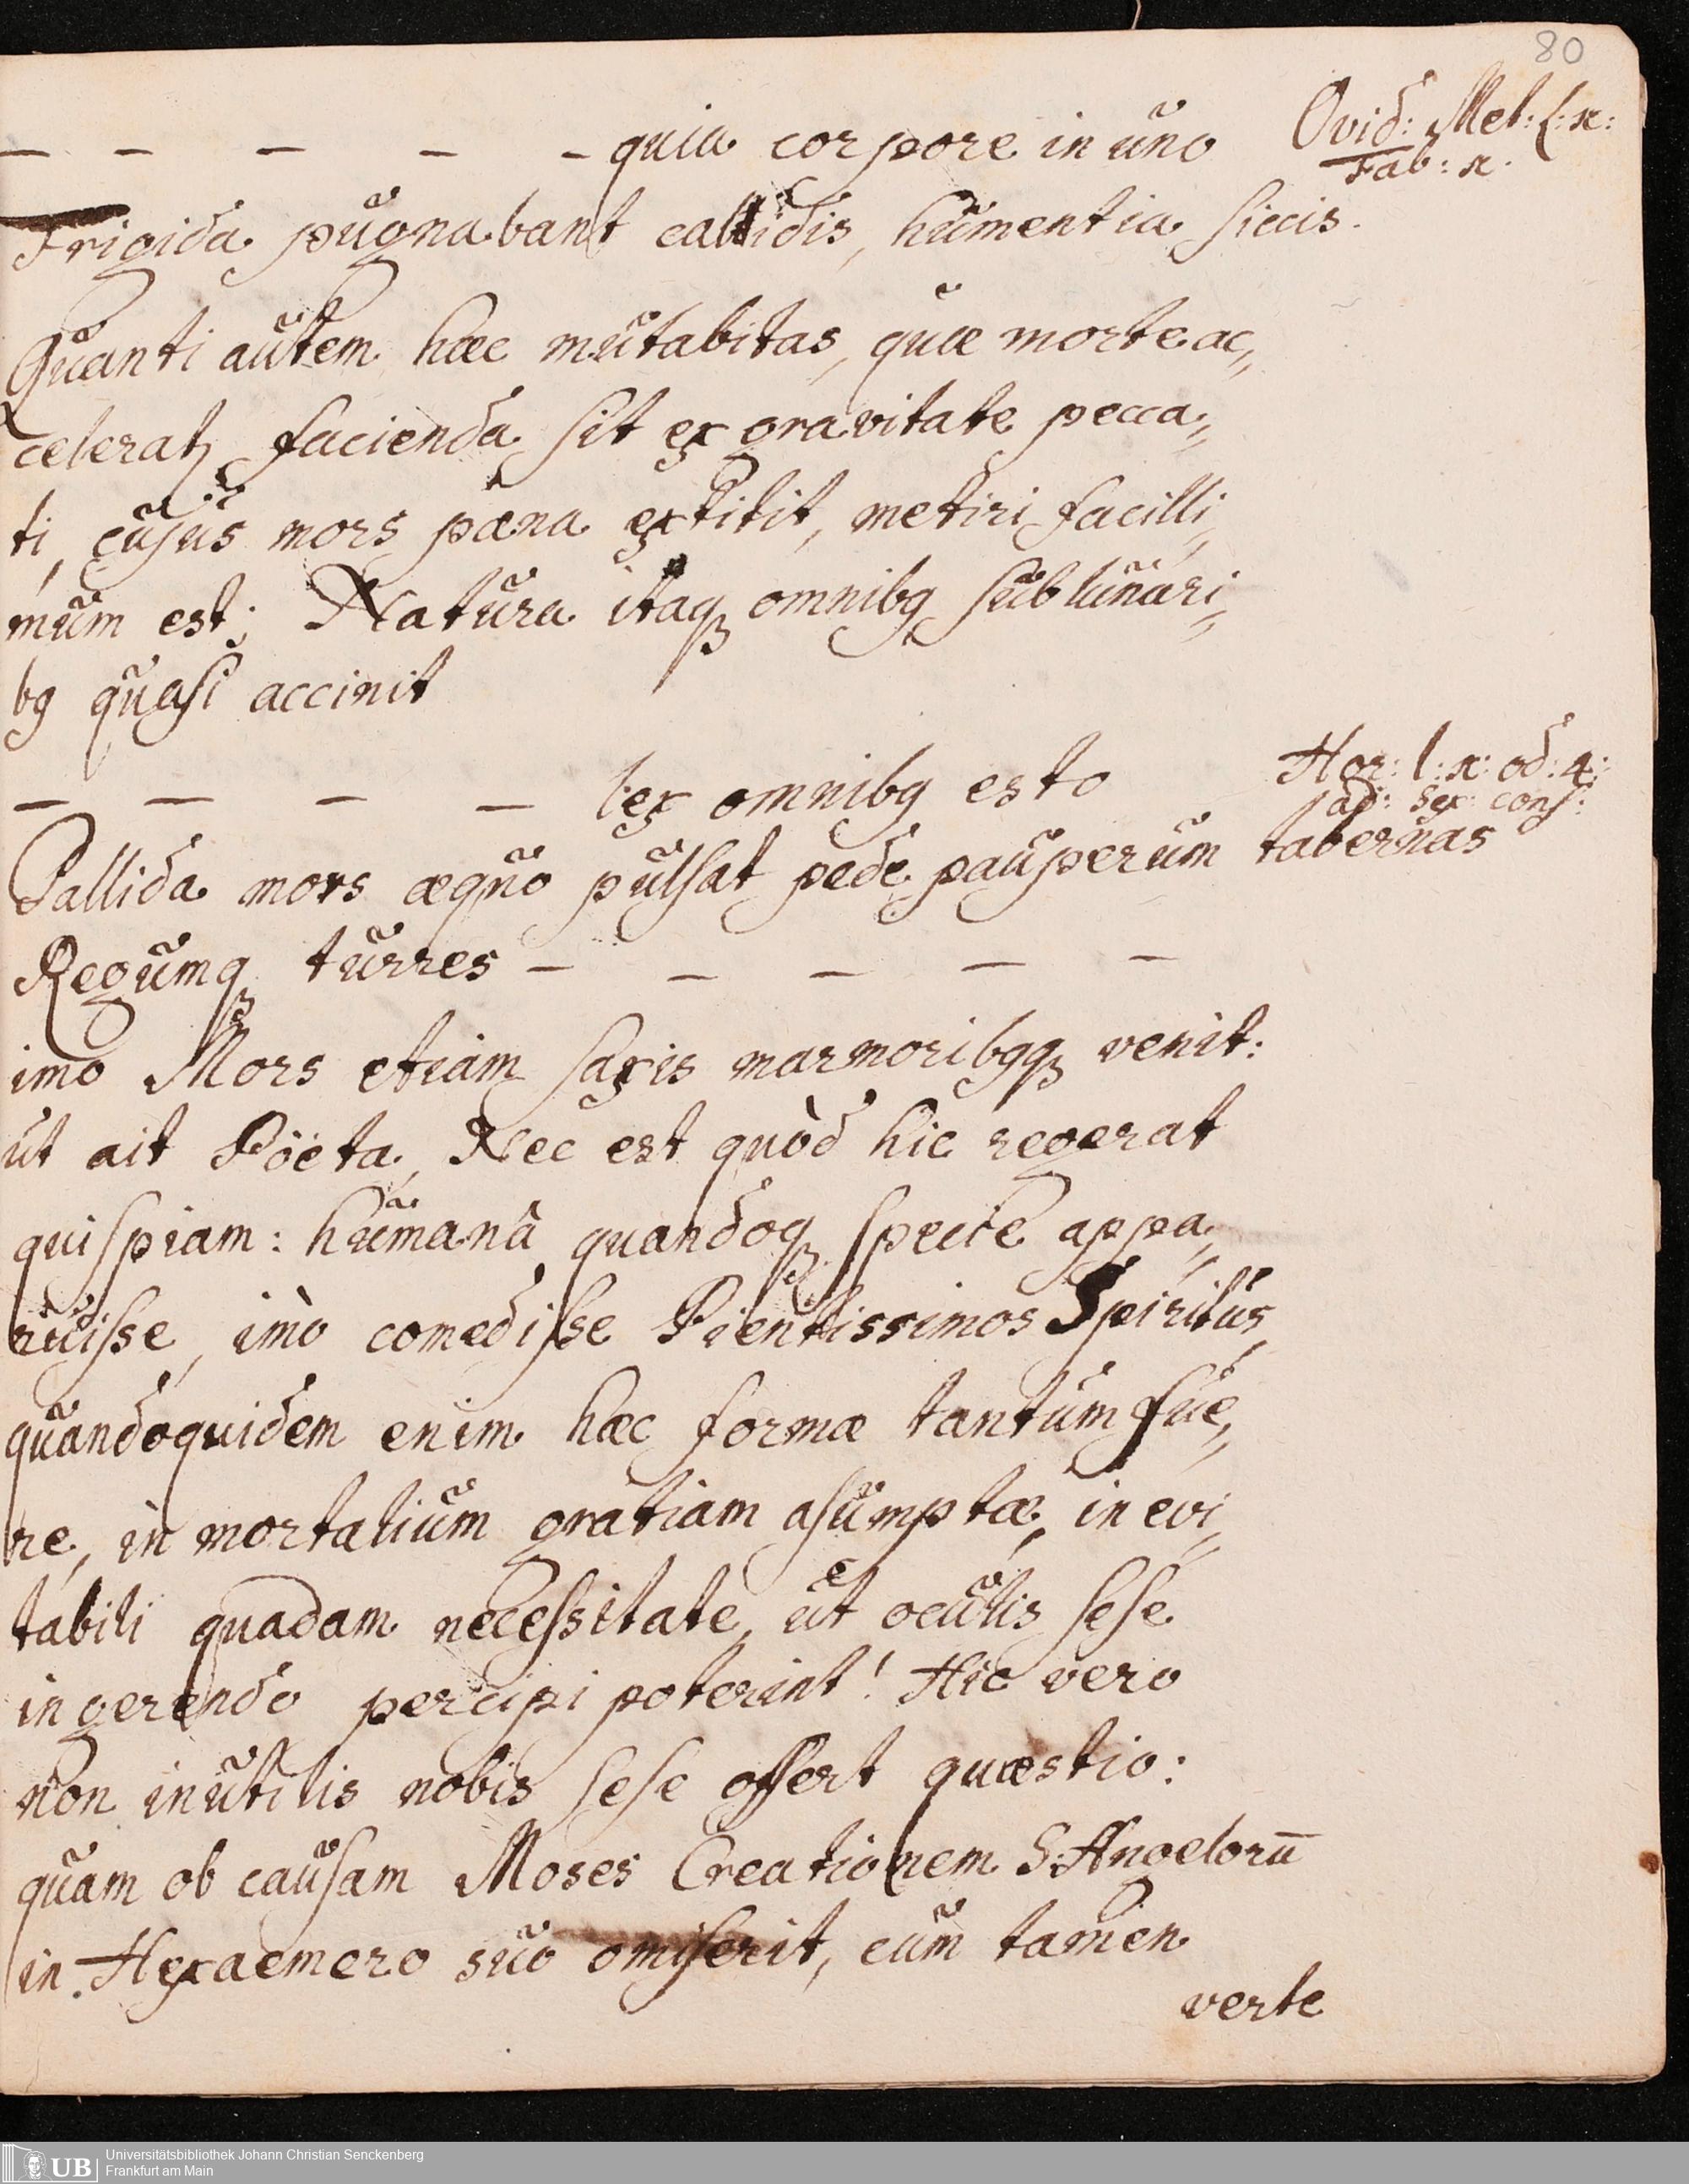 80
– – – – – quia corpore in uno
Ovid: Met: l: 1:
Fab: 1.
Frigida pugnabant calidis, humentia siccis.
Quanti autem haec mutabitas, quae morte ac„
celeratq facienda sit ex gravitate pecca„
ti, cujus mors paena extitit, metiri facilli„
mum est; Natura itaq omnibq sublunari„
bq quasi accinit
– – – – lex omnibq esto
Hor: l: 1: od: 4:
ad: Sex: cons:
Pallida mors aequo pulsat pede pauperum tabernas
Regumq turres – – – – –
imo Mors etiam saxis marmoribqq venit:
ut ait Pöeta, Nec est quòd hic regerat
quispiam: humanâ quandoq specie appa„
ruisse, imò comedisse Pientissimos Spiritus,
quandoquidem enim haec formae tantum fue„
re, in mortalium gratiam asumptae, inevi„
tabili quadam necessitate, ut oculis sese
ingerendo percipi poterint! Hic vero
non inutilis nobis sese offert quaestio:
quam ob causam Moses Creationem S. Angelorū
in Hexaemero suo omiserit, cum tamen
verte
Universitätsbibliothek Johann Christian Senckenberg
Frankfurt am Main
UB